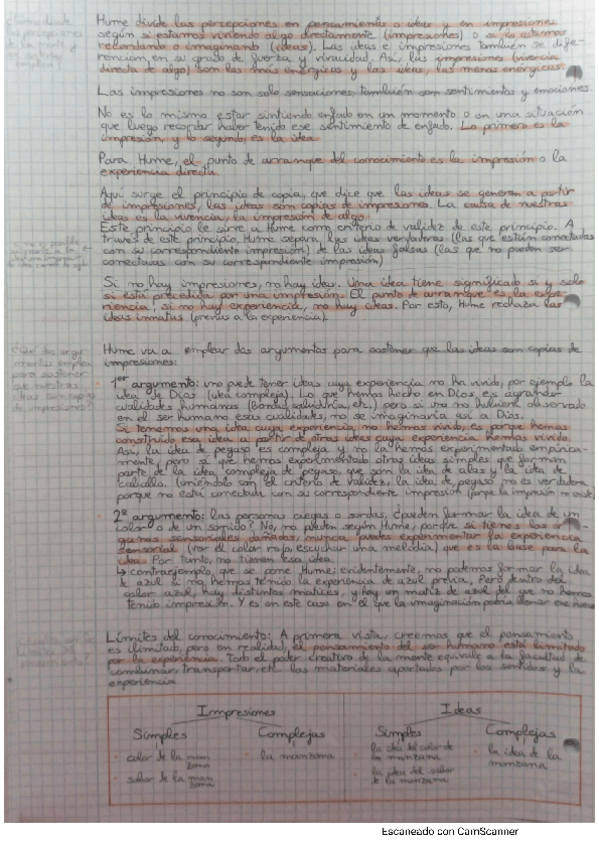 Hume divide las percepciones en pensamientos o ideas y en impresiones
según si estamos viviendo algo directamente (impresiones) o si lo estamos
recordando o imaginando (ideas). Las ideas e impresiones también se dife-
rencian en su grado de fuerza y vivacidad. Así, las impresiones (vivencia
directa de algo) son las más enérgicas y las ideas, las menos enérgicas.
Las impresiones no son solo sensaciones, también son sentimientos y emociones.
No es lo mismo estar sintiendo enfado en un momento o en una situación
que luego recordar haber tenido ese sentimiento de enfado. Lo primero es la
impresión, y lo segundo, es la idea.
Para Hume, el punto de arranque del conocimiento es la impresión o la
experiencia directa.
Aquí surge el principio de copia, que dice que las ideas se generan a partir
de impresiones, las ideas son copias de impresiones. La causa de nuestras
ideas es la vivencia, la impresión de algo.
Este principio le sirve a Hume como criterio de validez de este principio. A
través de este principio, Hume separa, las ideas verdaderas (las que están conectadas
con su correspondiente impresión) de las ideas falsas (las que no pueden ser
conectadas con su correspondiente impresión)
Si no hay impresiones, no hay ideas. Una idea tiene significado si y solo
si está precedida por una impresión. El punto de arranque es la expe-
riencia, si no hay experiencia, no hay ideas. Por esto, Hume rechaza las
ideas innatas (previas a la experiencia).
Hume va a emplear dos argumentos para sostener que las ideas son copias de
impresiones:
1er argumento: uno puede tener ideas cuya experiencia no ha vivido, por ejemplo la
idea de Dios (idea compleja). Lo que hemos hecho en Dios, es agrandar
cualidades humanas (bondad, sabiduría, etc.) pero si uno no hubiera observado
en el ser humano esas cualidades, no se imaginaría así a Dios.
Si tenemos una idea cuya experiencia no hemos vivido, es porque hemos
construido esa idea a partir de otras ideas cuya experiencia hemos vivido.
Así, la idea de pegaso es compleja y no la hemos experimentado empírica-
mente, pero sí que hemos experimentado otras ideas simples que forman
parte de la idea compleja de pegaso, que son la idea de alas y la idea de
caballo. (uniéndolo con el criterio de validez, la idea de pegaso no es verdadera
porque no está conectada con su correspondiente impresión (porque la impresión no existe)
2º argumento: las personas ciegas o sordas, ¿pueden formar la idea de un
color o de un sonido? No, no pueden según Hume, porque si tienes los ór-
ganos sensoriales dañados, nunca puedes experimentar la experiencia
sensorial (ver el color rojo, escuchar una melodía) que es la base para la
idea. Por tanto, no tienen esa idea.
↳ contraejemplo, que se come Hume: evidentemente, no podemos formar la idea
de azul si no hemos tenido la experiencia de azul previa. Pero dentro del
color azul, hay distintos matices, y hay un matiz de azul del que no hemos
tenido impresión. Y es en este caso en el que la imaginación podría llenar ese hueco
Límites del conocimiento: A primera vista, creemos que el pensamiento
es ilimitado, pero en realidad, el pensamiento del ser humano está limitado
por la experiencia. Todo el poder creativo de la mente equivale a la facultad de
combinar, transportar, etc. los materiales aportados por los sentidos y la
experiencia
Impresiones
Ideas
Simples
Complejas
Simples
Complejas
color de la manzana
la manzana
la idea del color de
la manzana
la idea de la
manzana
sabor de la manzana
la idea del sabor
de la manzana
Escaneado con CamScanner